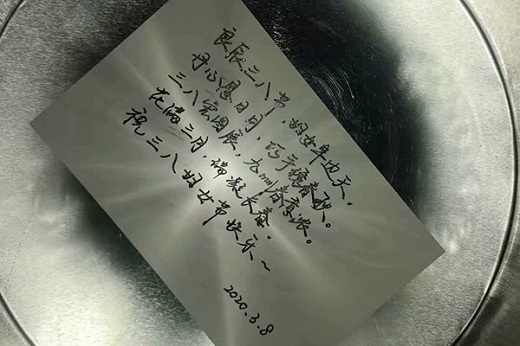 良辰三八节，妇女半边天。
丹心悬日月，巧手绣春秋。
三八宏图展，九州春意浓。
花满三月，瑞凝长春．
祝三八妇女节快乐～
2020.3.8